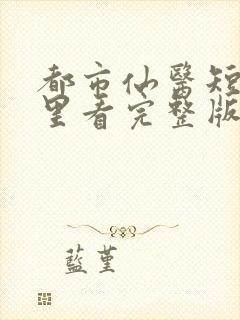 都市仙醫短
里看完整版
藍堇